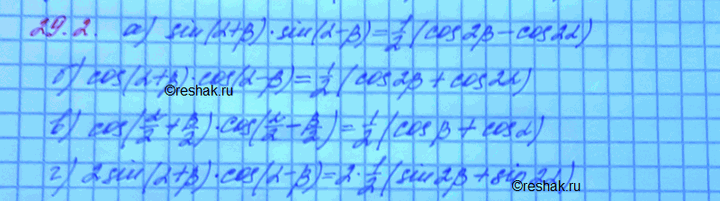 29.2. а) sin(α+β)·sin(α-β)=1/2(cos2β-cos2α)
б) cos(α+β)·cos(α-β)=1/2(cos2β+cos2α)
©reshak.ru
в) cos(α/2+β/2)·cos(α/2-β/2)=1/2(cosβ+cosα)
г) 2sin(α+β)·cos(α-β)=2·1/2(sin2β+sin2α)
©reshak.ru